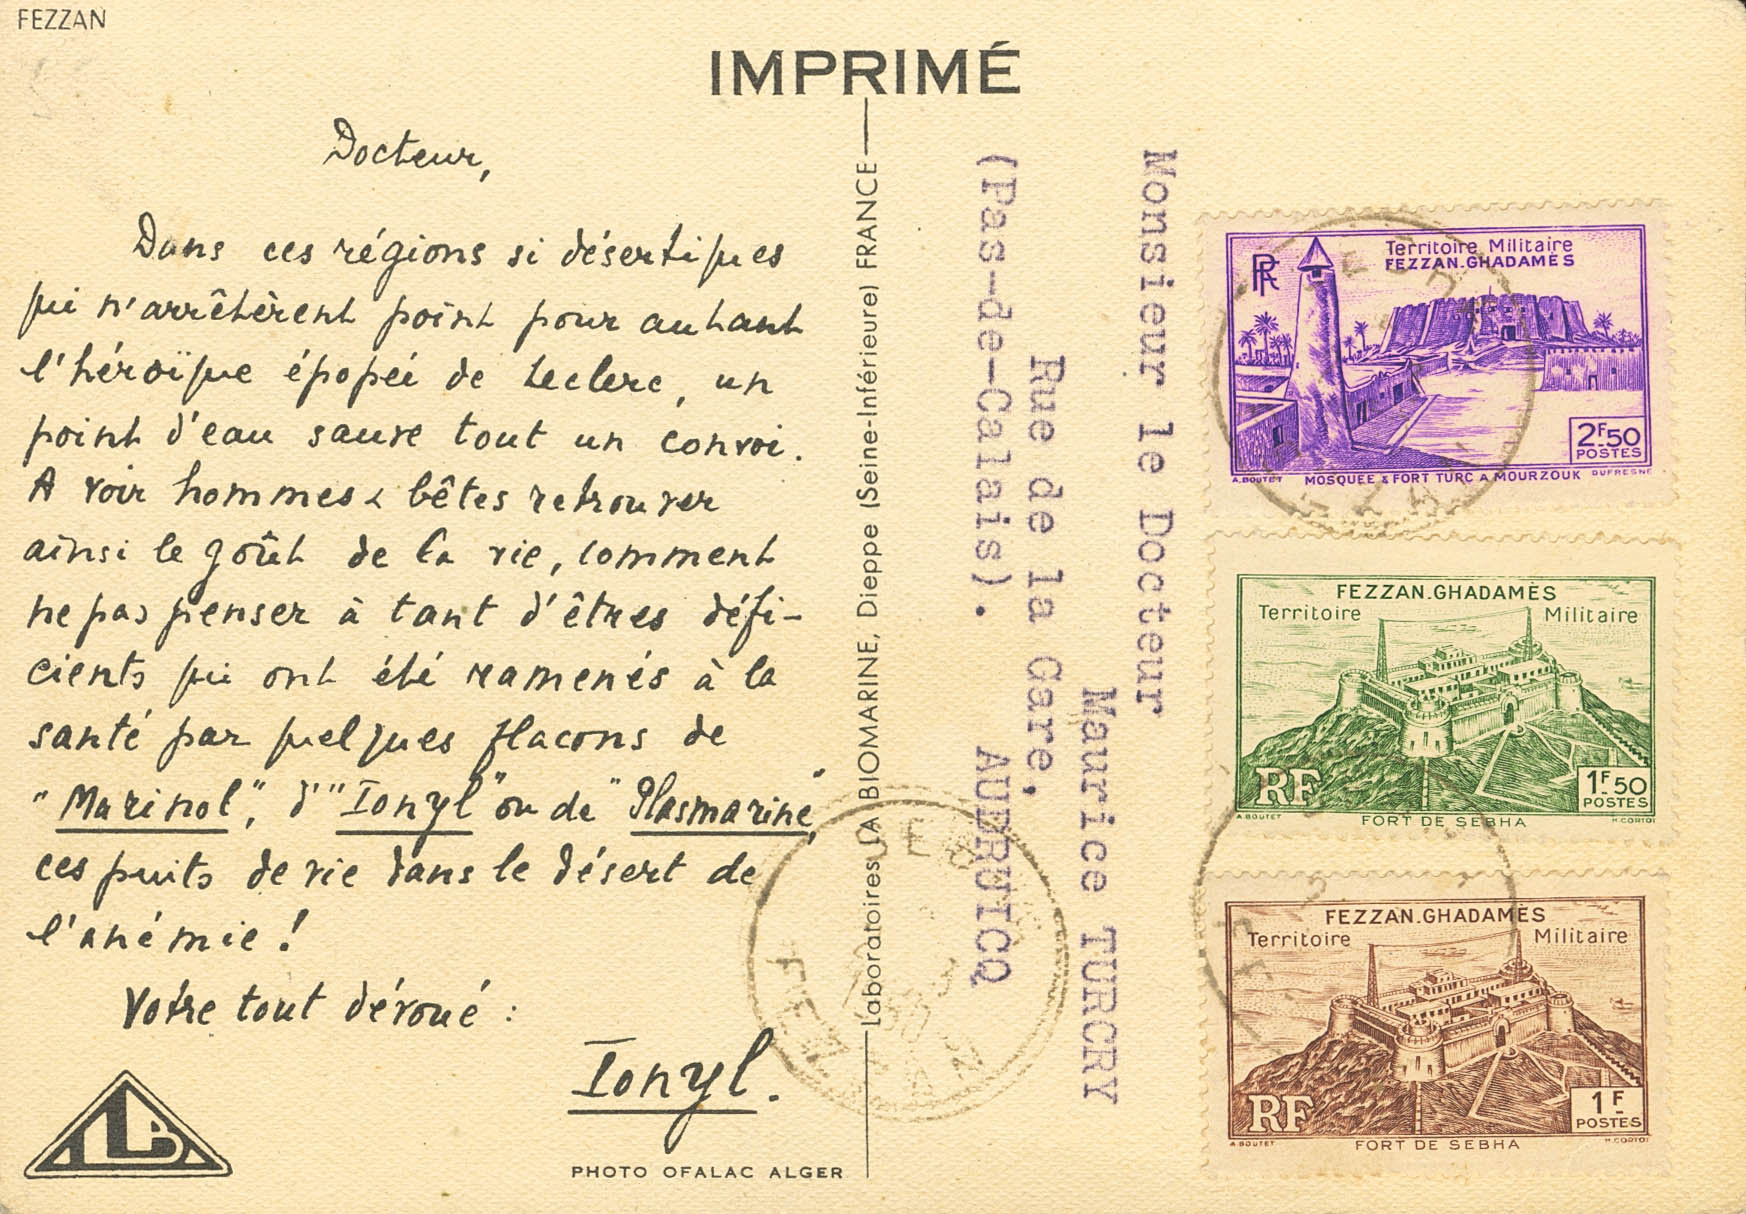 FEZZAN
IMPRIMÉ
Docteur,
Dans ces régions si désertiques
qui n'arrêtèrent point pour autant
l'héroïque épopée de Leclerc, un
point d'eau sauve tout un convoi.
A voir hommes & bêtes retrouver
ainsi le goût de la vie, comment
ne pas penser à tant d'êtres défi-
cients qui ont été ramenés à la
santé par quelques flacons de
"Marinol", d'"Ionyl" ou de "Plasmarine",
ces puits de vie dans le désert de
l'anémie !
Votre tout dévoué :
Ionyl.
PHOTO OFALAC ALGER
Laboratoires LA BIOMARINE, Dieppe (Seine-Inférieure) FRANCE
Monsieur le Docteur
Maurice TURCRY
Rue de la Gare,
(Pas-de-Calais). AUDRUICQ
RF
Territoire Militaire
FEZZAN.GHADAMÈS
2F.50
POSTES
A.BOUTET MOSQUEE & FORT TURC A MOURZOUK DUFRESNE
FEZZAN.GHADAMÈS
Territoire Militaire
RF
1F.50
POSTES
A.BOUTET FORT DE SEBHA H.CORTOT
FEZZAN.GHADAMÈS
Territoire Militaire
RF
1F
POSTES
A.BOUTET FORT DE SEBHA H.CORTOT
FEZZAN